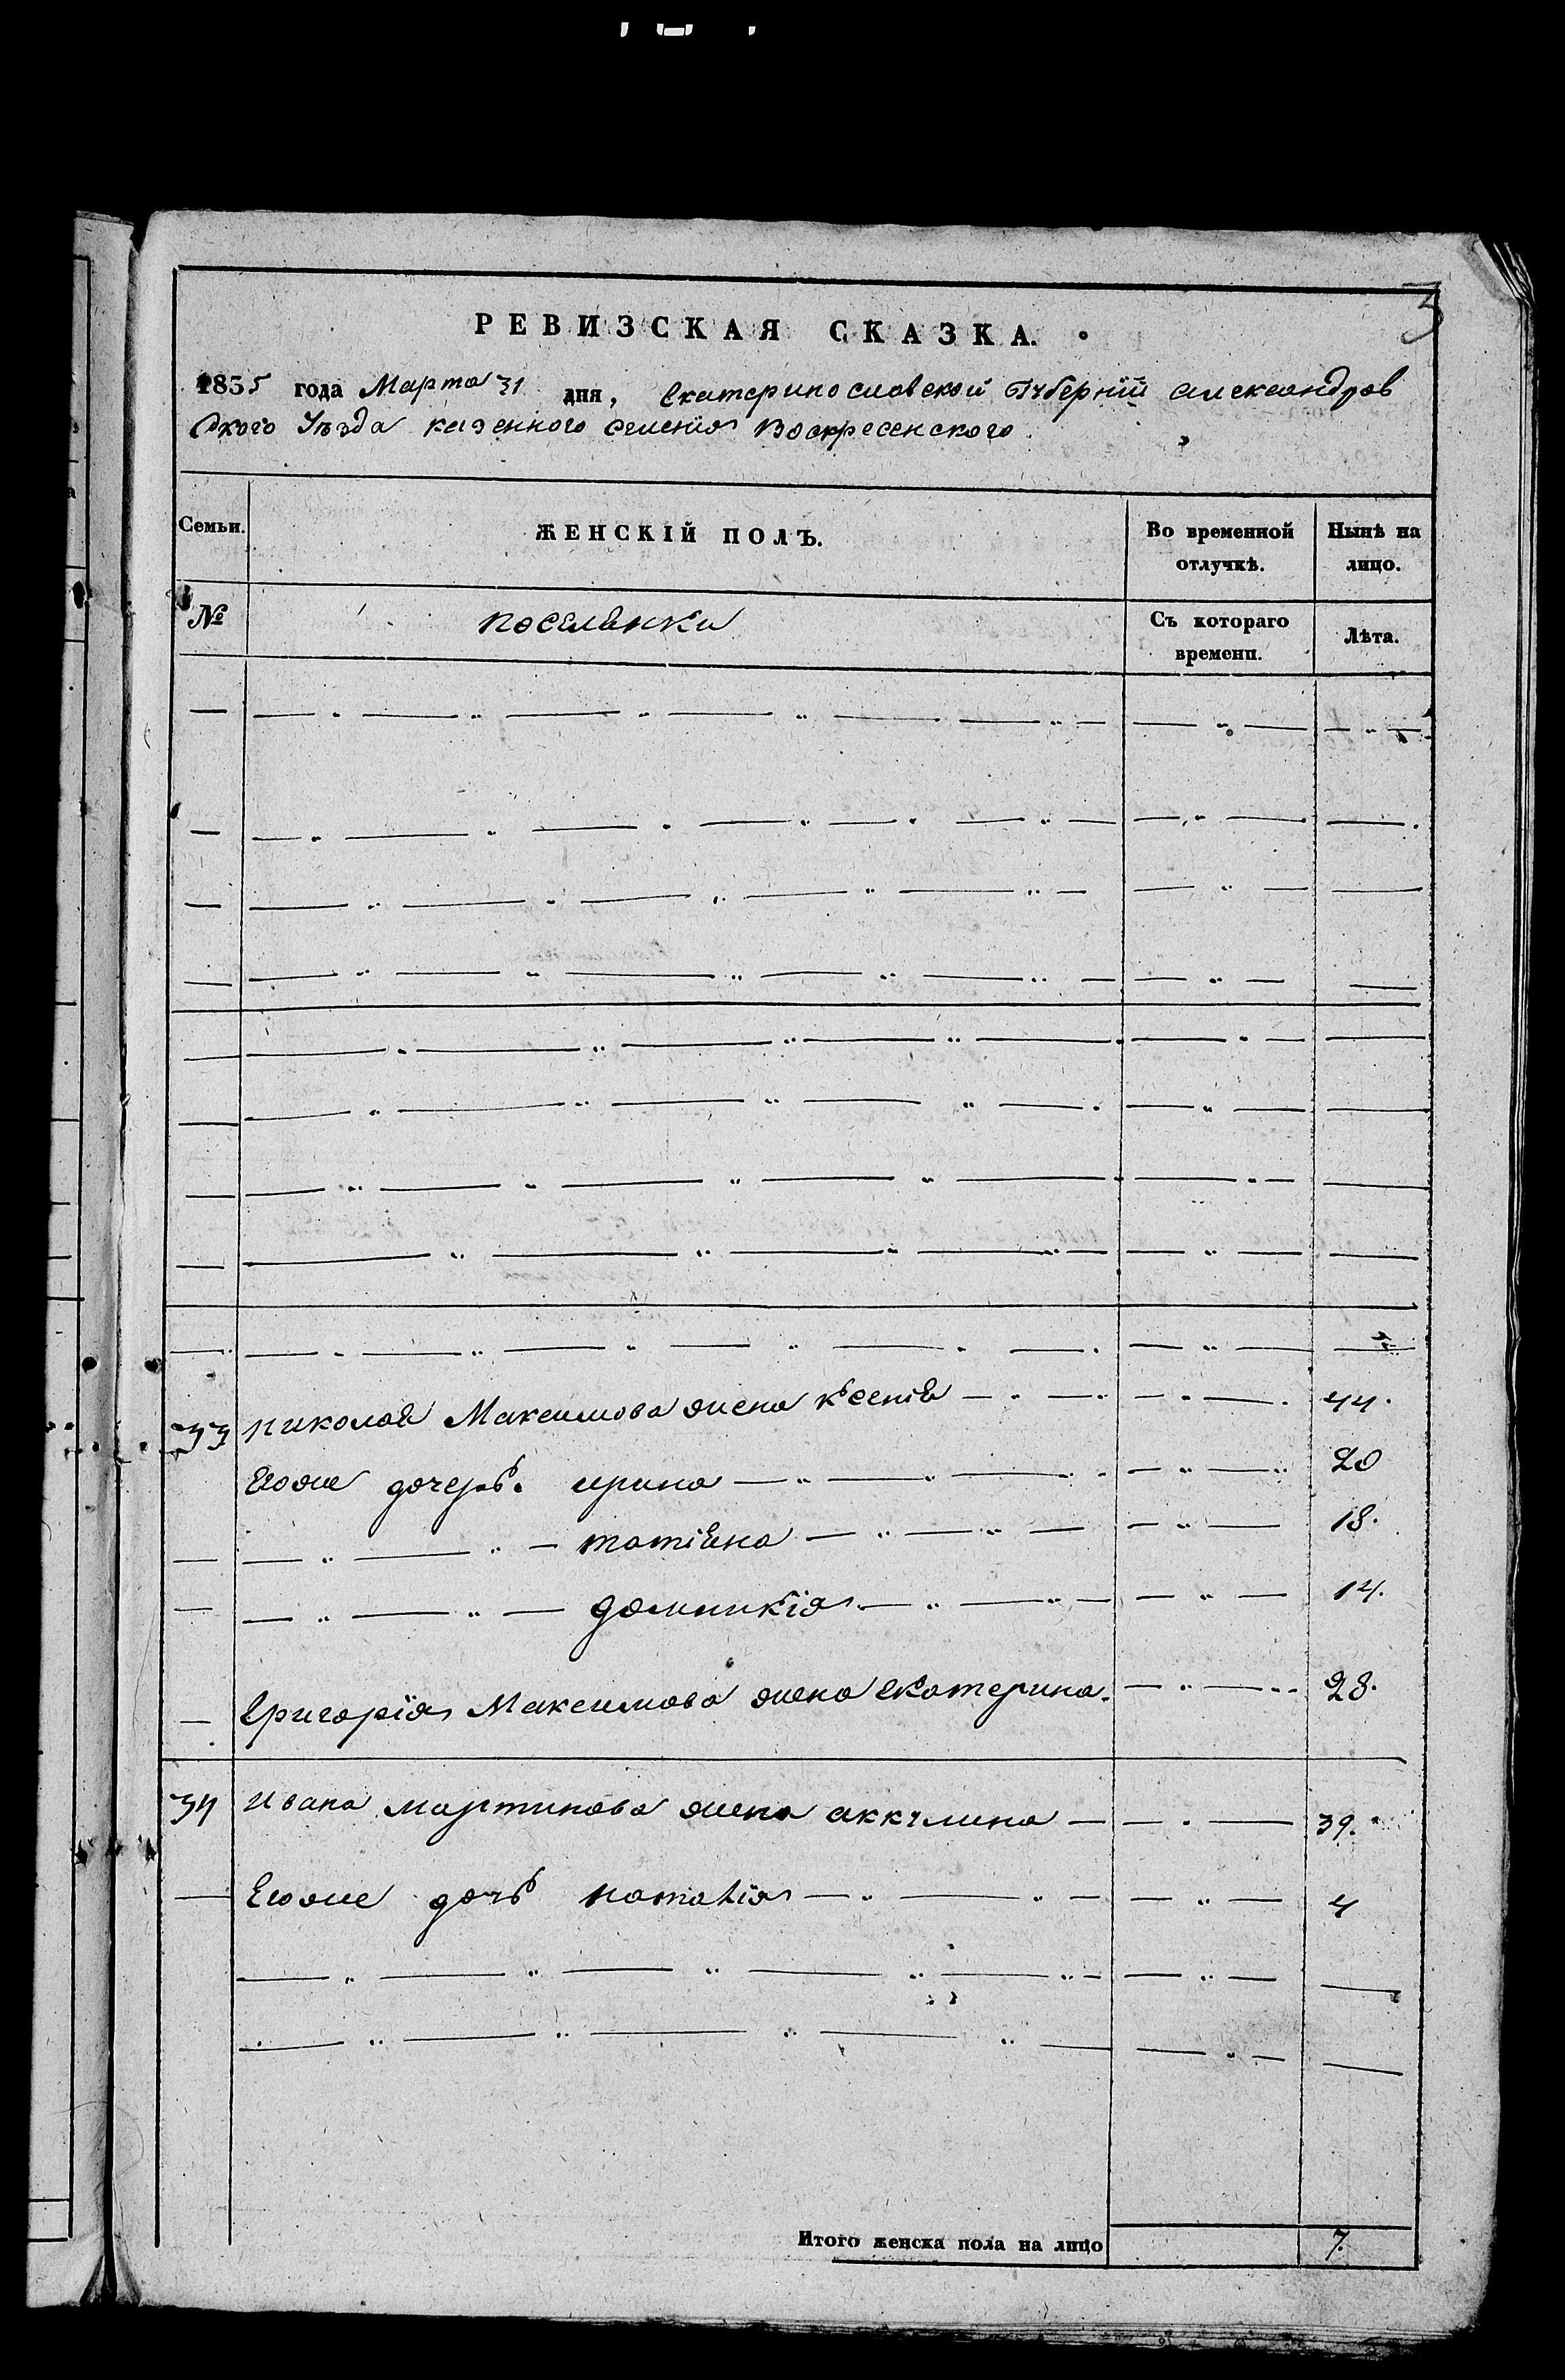 3
РЕВИЗСКАЯ СКАЗКА.
1835 года Марта 31 дня, Екатеринославской Губерніи Александров
ского Уѣзда казенного селенія Воскресенского
Семьи. ЖЕНСКІЙ ПОЛЪ. Во временной отлучкѣ. Нынѣ на лицо.
№ поселянки Съ котораго времени. Лѣта.
33 Николая Максимова жена Ксенія 44.
Егоже дочерь. ирина 20
татіяна 18.
домникія 14.
Григорія Максимова жена екатерина. 28.
34 Ивана мартинова жена аккулина 39.
Егоже дочь наталія 4
Итого женска пола на лицо 7.